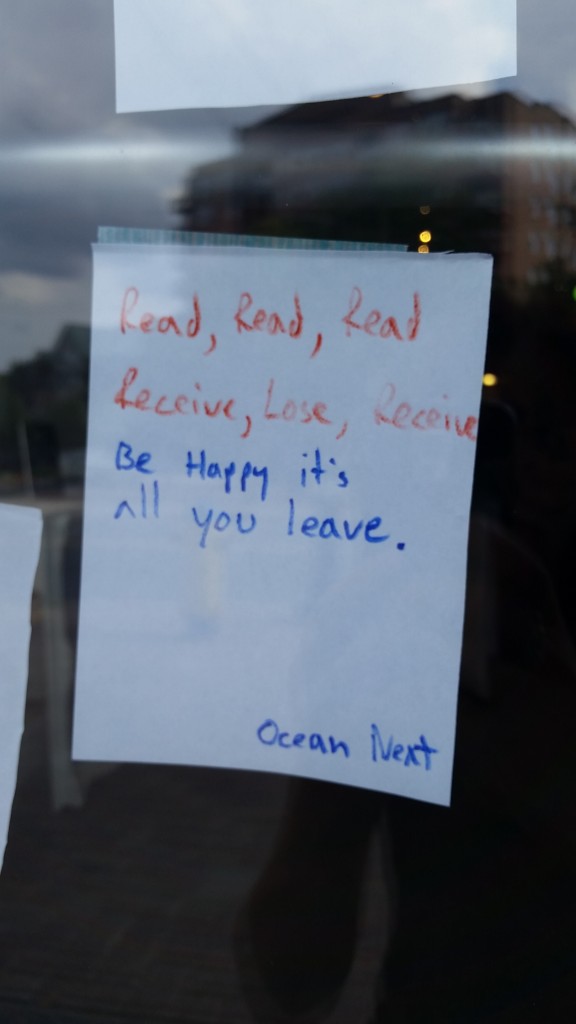 Read, Read, Read
Receive, Lose, Receive
Be Happy it's
all you leave.
Ocean Next